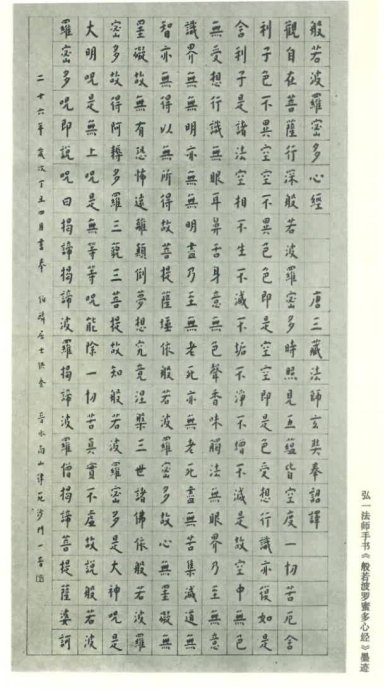 般若波羅密多心經 唐三藏法師玄奘奉詔譯
觀自在菩薩行深般若波羅密多時照見五蘊皆空度一切苦厄舍
利子色不異空空不異色色即是空空即是色受想行識亦復如是
舍利子是諸法空相不生不滅不垢不淨不增不減是故空中無色
無受想行識無眼耳鼻舌身意無色聲香味觸法無眼界乃至無意
識界無無明亦無無明盡乃至無老死亦無老死盡無苦集滅道無
智亦無得以無所得故菩提薩埵依般若波羅密多故心無罣礙無
罣礙故無有恐怖遠離顛倒夢想究竟涅槃三世諸佛依般若波羅
密多故得阿耨多羅三藐三菩提故知般若波羅密多是大神呪是
大明呪是無上呪是無等等呪能除一切苦真實不虛故說般若波
羅密多呪即說呪曰揭諦揭諦波羅揭諦波羅僧揭諦菩提薩婆訶
二十六年歲次丁丑四月書奉 伯居士供養 晉水南山律苑沙門一音
弘一法师手书《般若波罗蜜多心经》墨迹